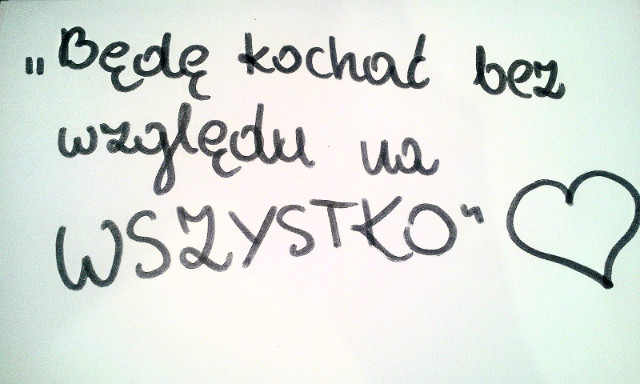 "Będę kochać bez
względu na
WSZYSTKO"